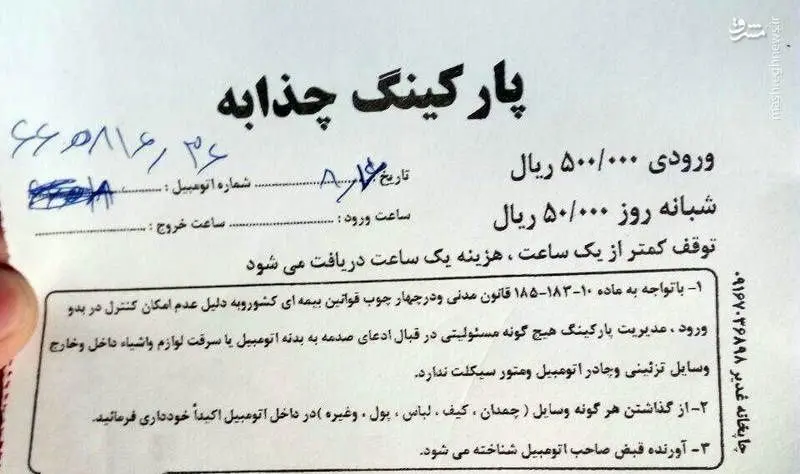 مشرق
mashreghnews.ir
پارکینگ چذابه
ورودی ۵۰۰/۰۰۰ ریال
تاریخ ۸/۷ شماره اتومبیل :
شبانه روز ۵۰/۰۰۰ ریال
ساعت ورود : ساعت خروج :
توقف کمتر از یک ساعت ، هزینه یک ساعت دریافت می شود
۱- باتواجه به ماده ۱۰-۱۸۳-۱۸۵ قانون مدنی ودرچهار چوب قوانین بیمه ای کشوروبه دلیل عدم امکان کنترل در بدو
ورود ، مدیریت پارکینگ هیچ گونه مسئولیتی در قبال ادعای صدمه به بدنه اتومبیل یا سرقت لوازم واشیاء داخل وخارج
وسایل تزئینی وچادر اتومبیل ومتور سیکلت ندارد.
۲- از گذاشتن هر گونه وسایل ( چمدان ، کیف ، لباس ، پول . وغیره )در داخل اتومبیل اکیداً خودداری فرمائید.
۳- آورنده قبض صاحب اتومبیل شناخته می شود.
چاپخانه غدیر ۰۹۱۶۷۰۳۶۸۹۸